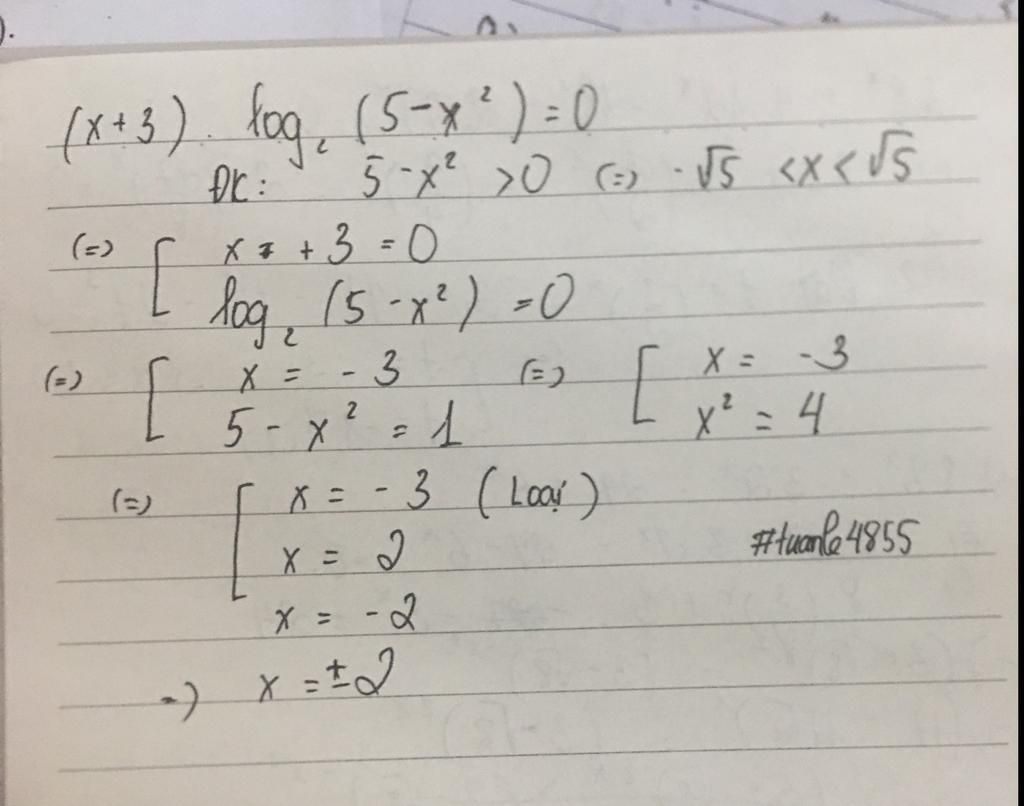 (x+3). log₂ (5-x²) = 0
ĐK: 5-x² >0 (=) -√5 <x< √5
(=) [ x + 3 = 0
log₂ (5-x²) = 0
(=) [ x = -3 (=) [ x = -3
5 - x² = 1 x² = 4
(=) [ x = -3 (Loại)
x = 2
#tuanle4855
x = -2
=) x = ±2